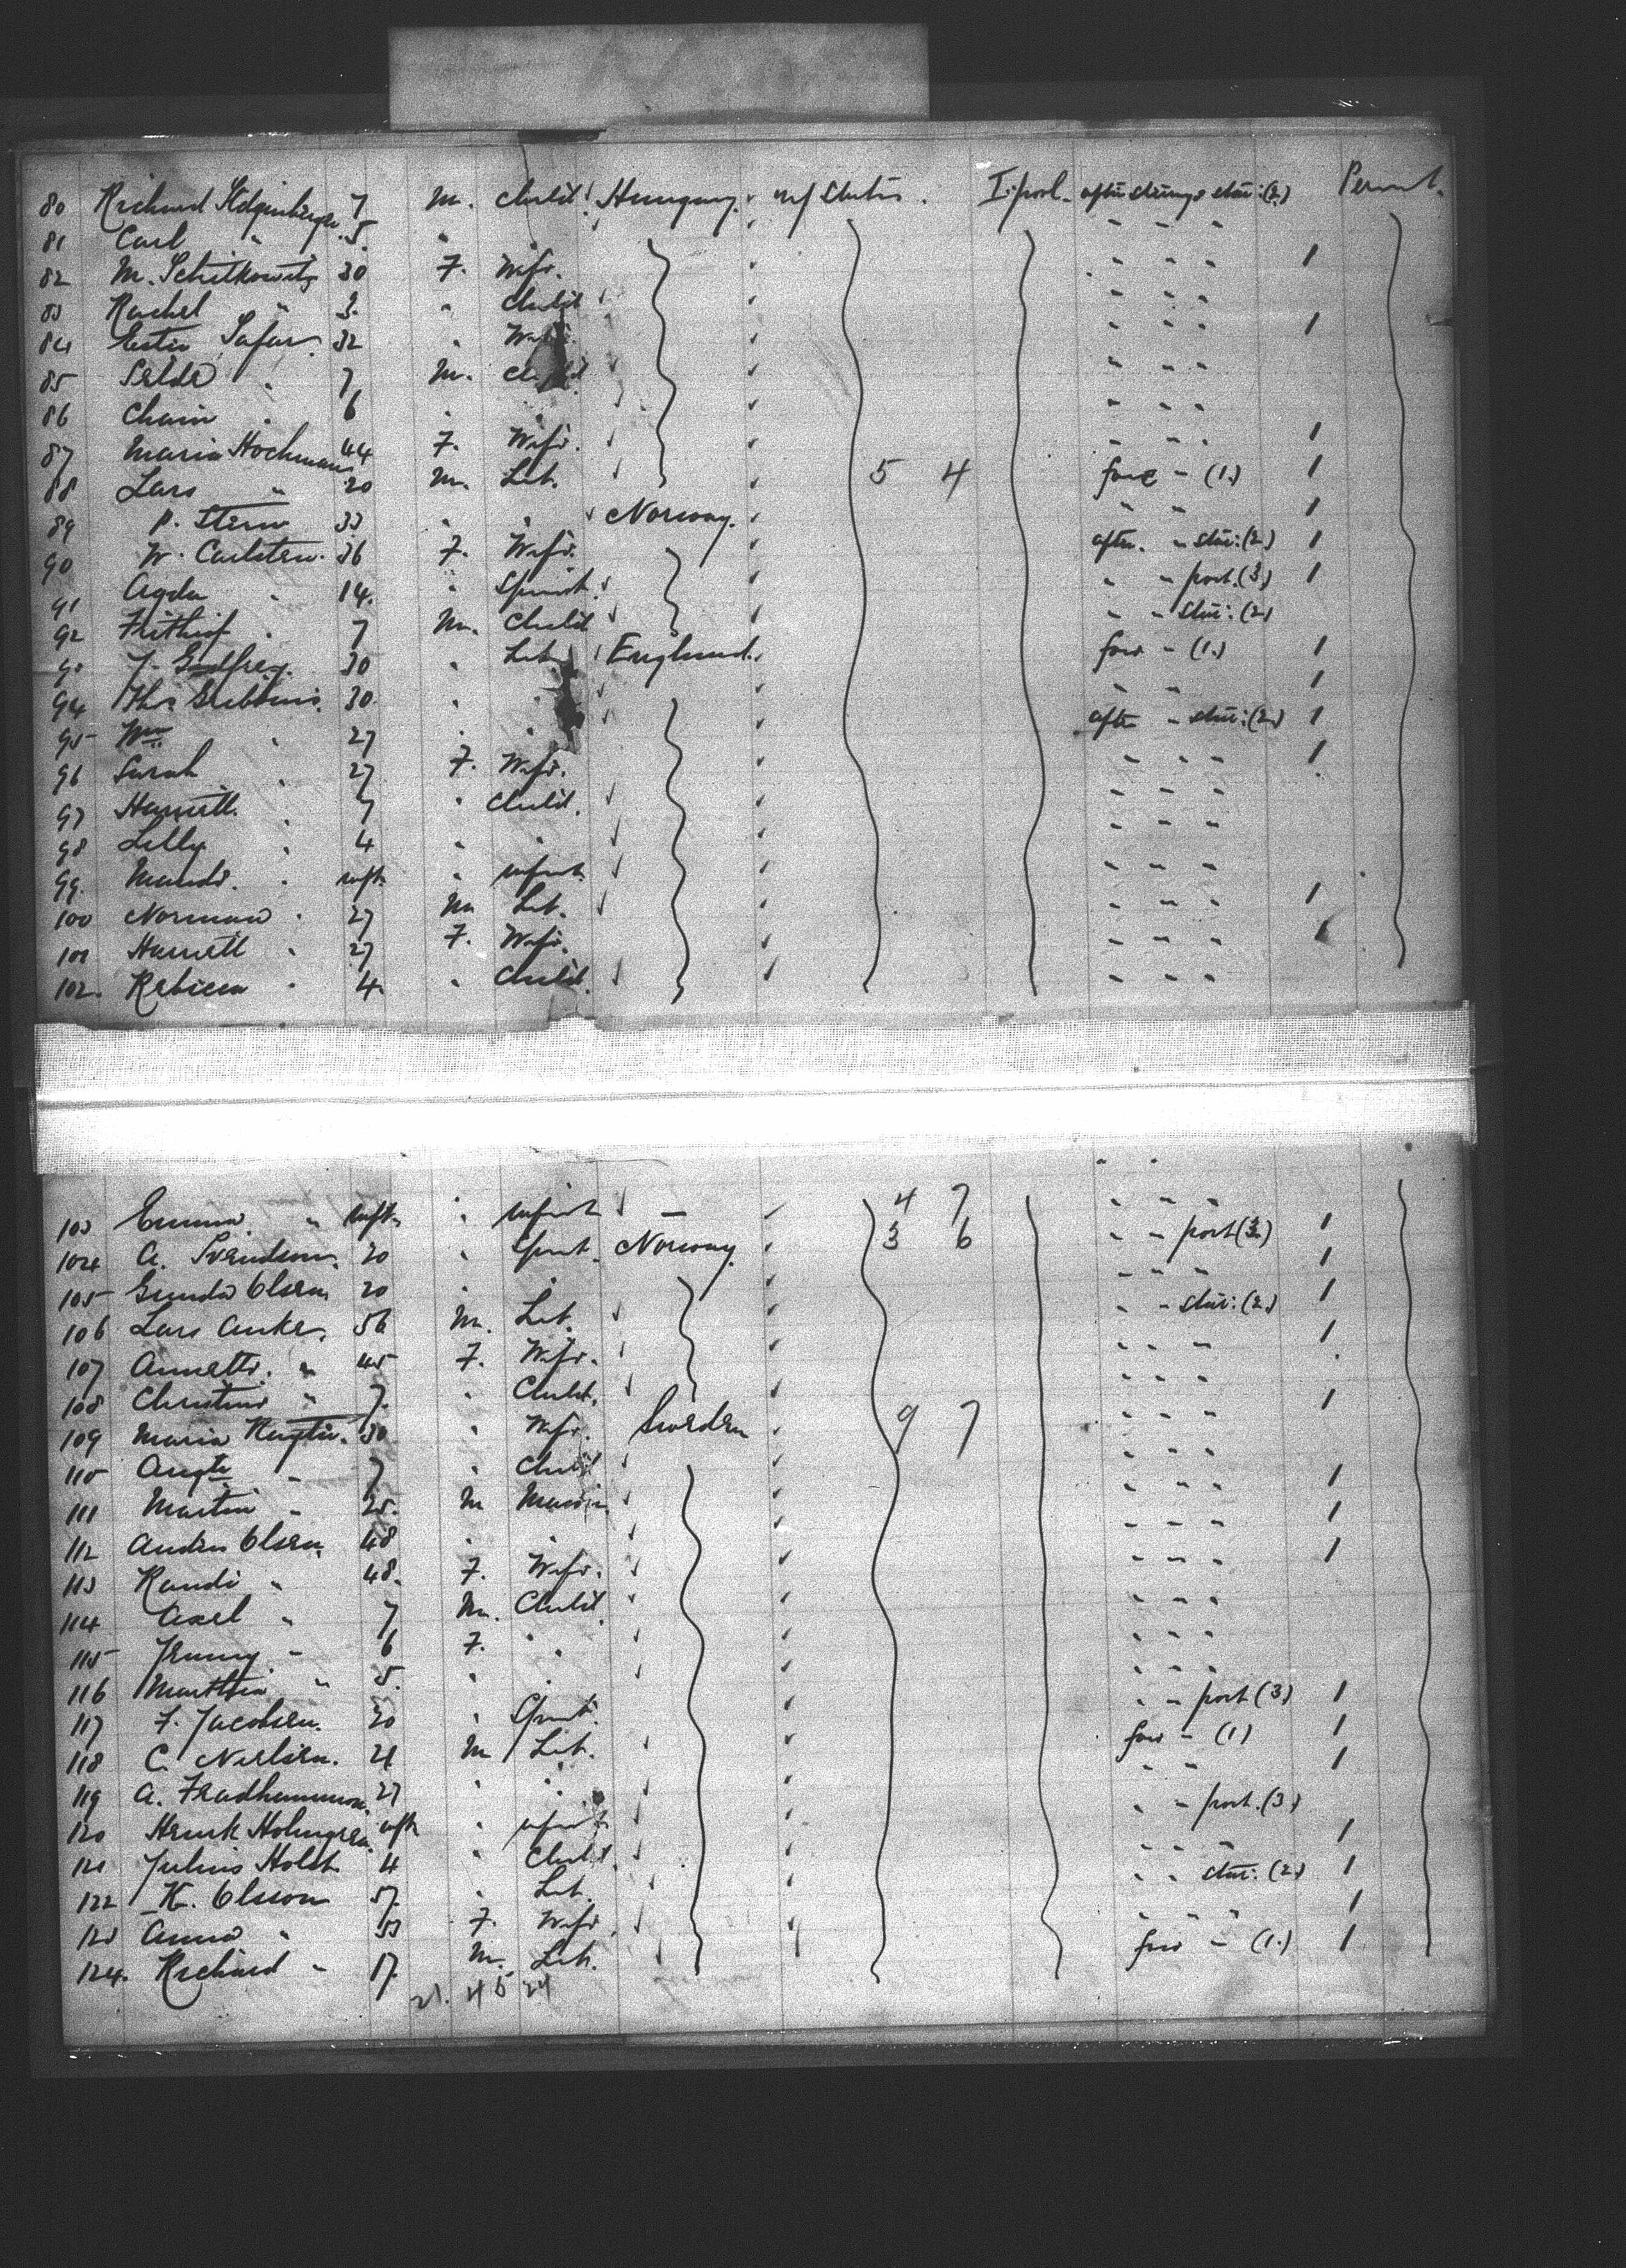 80 Richard 7 M. Child Hungary. of States. I:pool. after steerage star:(2) Permt.
81 Carl " 5. " " " "
82 M. 30 F. Wife. " " " 1
83 Rachel " 3. " Child " " "
84 Ester Safar. 32 " Wife. " " " 1
85 Selde " 7 M. Child " " "
86 Chain " 6 " " " " "
87 Maria Hochmann 44 F. Wife. " " " 1
88 Lars " 20 M. Lab. 5 4 fore " (1.) 1
89 P. Stern 33 " " Norway. " " 1
90 W. Carlsten. 36 F. Wife. after. " star:(2) 1
91 Agda " 14. " Spinst. " " port.(3) 1
92 Frithiof " 7 M. Child " " star:(2)
93 J. Godfrey. 30 " Lab. England. fore " (1.) 1
94 Ths Gibbons. 30. " " " " 1
95 Wm " 27 " " after " star:(2.) 1
96 Sarah " 27 F. Wife. " " " 1
97 Harriett. " 7 " Child. " " "
98 Lilly " 4 " " " " "
99. Maude. " inft. " infant. " " "
100 Norman " 27 M Lab. " " " 1
101 Harriett " 27 F. Wife. " " " 1
102. Rebecca " 4. " Child. " " "
103 Emma " inft. " infant — 4 7 " " "
104 A. Svendsen. 20 " Spinst. Norway. 3 6 " " port(3) 1
105 Gunda Olsen 20 " " " " " 1
106 Lars Anker. 56 M. Lab. " " star:(2.) 1
107 Annette. " 45 F. Wife. " " " 1
108 Christine " 7. " Child. " " "
109 Maria 30 " Wife. Sweden 9 7 " " " 1
110 Augte " 7 " Child " " "
111 Martin " 25. M " " " 1
112 Anders Olsen 48 " " " " " 1
113 Randi " 48. F. Wife. " " " 1
114 Axel " 7 M. Child. " " "
115 Jenny. " 6 F. " " " "
116 Marthia " 5. " " " " "
117 F. Jacobsen. 20 " Spinst. " " port(3) 1
118 C. Nielsen. 21 M Lab. fore " (1) 1
119 A. 27 " " " " 1
120 Henrk Holmgren inft " infant " " port.(3)
121 Julius Holst 4 " Child. " " " 1
122 K. Olsson 57. " Lab. " " star:(2.) 1
123 Anna " 53 F. Wife " " " 1
124. Richard " 17. M. Lab. fore " (1.) 1
21. 45 24